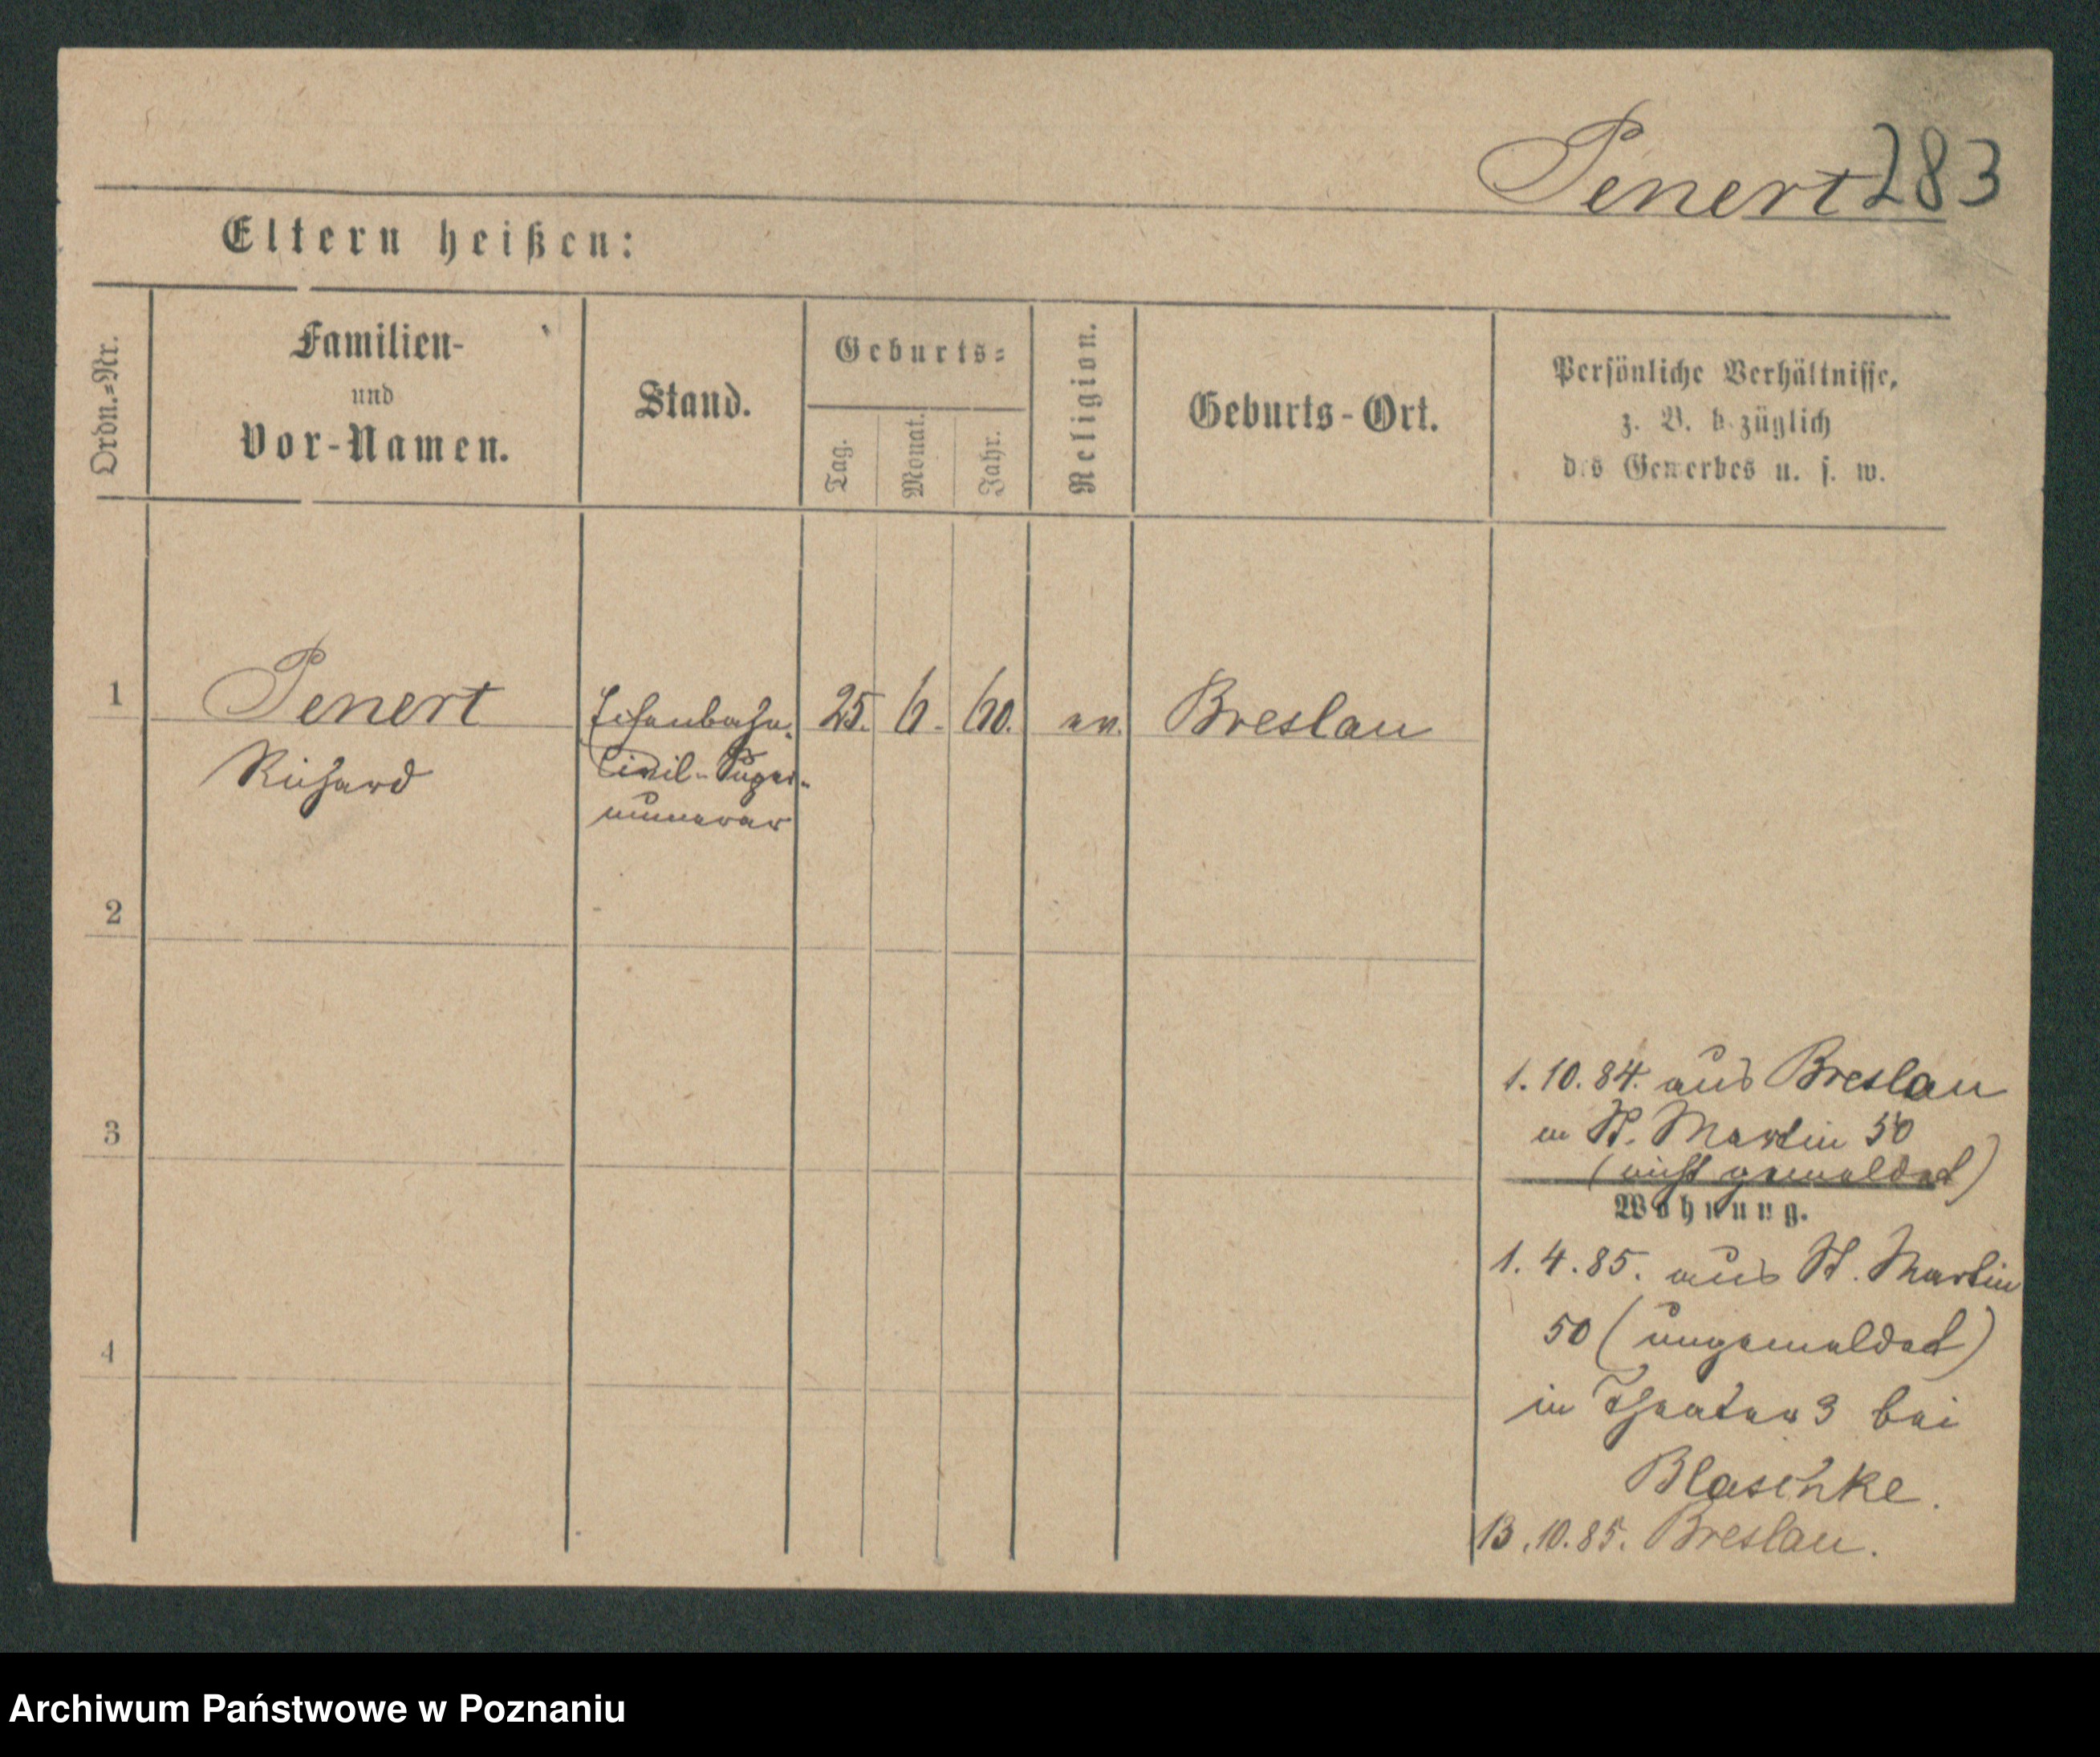 Penert 283
Eltern heißen:
Ordn.=Nr.
Familien-
und
Vor-Namen.
Stand.
Geburts=
Tag.
Monat.
Jahr.
Religion.
Geburts-Ort.
Persönliche Verhältnisse,
z. B. bezüglich
des Gewerbes u. s. w.
1 Penert Eisenbahn- 25. 6. 60. ev. Breslau
Richard Civil-Super-
numerar
2
3
4
1. 10. 84. aus Breslau
in St. Martin 50
(nicht gemeldet)
Wohnung.
1. 4. 85. aus St. Martin
50 (ungemeldet)
in Theater 3 bei
Blaschke.
13. 10. 85. Breslau.
Archiwum Państwowe w Poznaniu